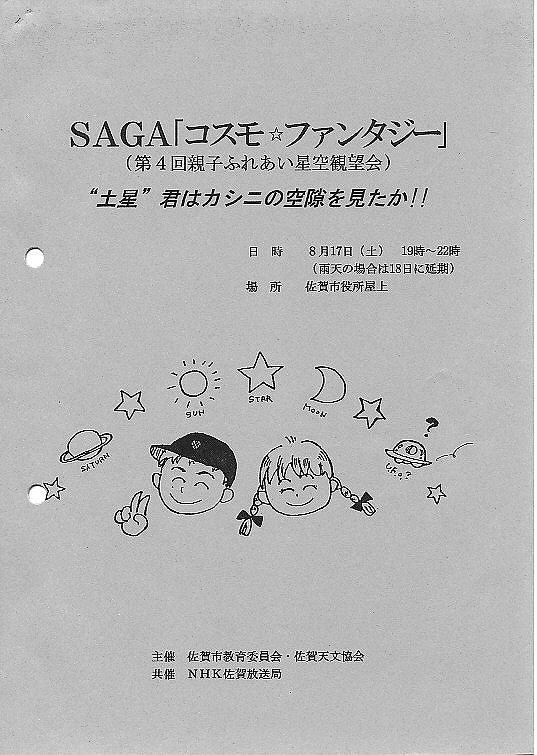 SAGA「コスモ☆ファンタジー」
(第4回親子ふれあい星空観望会)
“土星”君はカシニの空隙を見たか!!
日 時 8月17日(土) 19時～22時
(雨天の場合は18日に延期)
場 所 佐賀市役所屋上
STAR
SUN
MOON
SATURN
?
U.F.O.?
主催 佐賀市教育委員会・佐賀天文協会
共催 NHK佐賀放送局